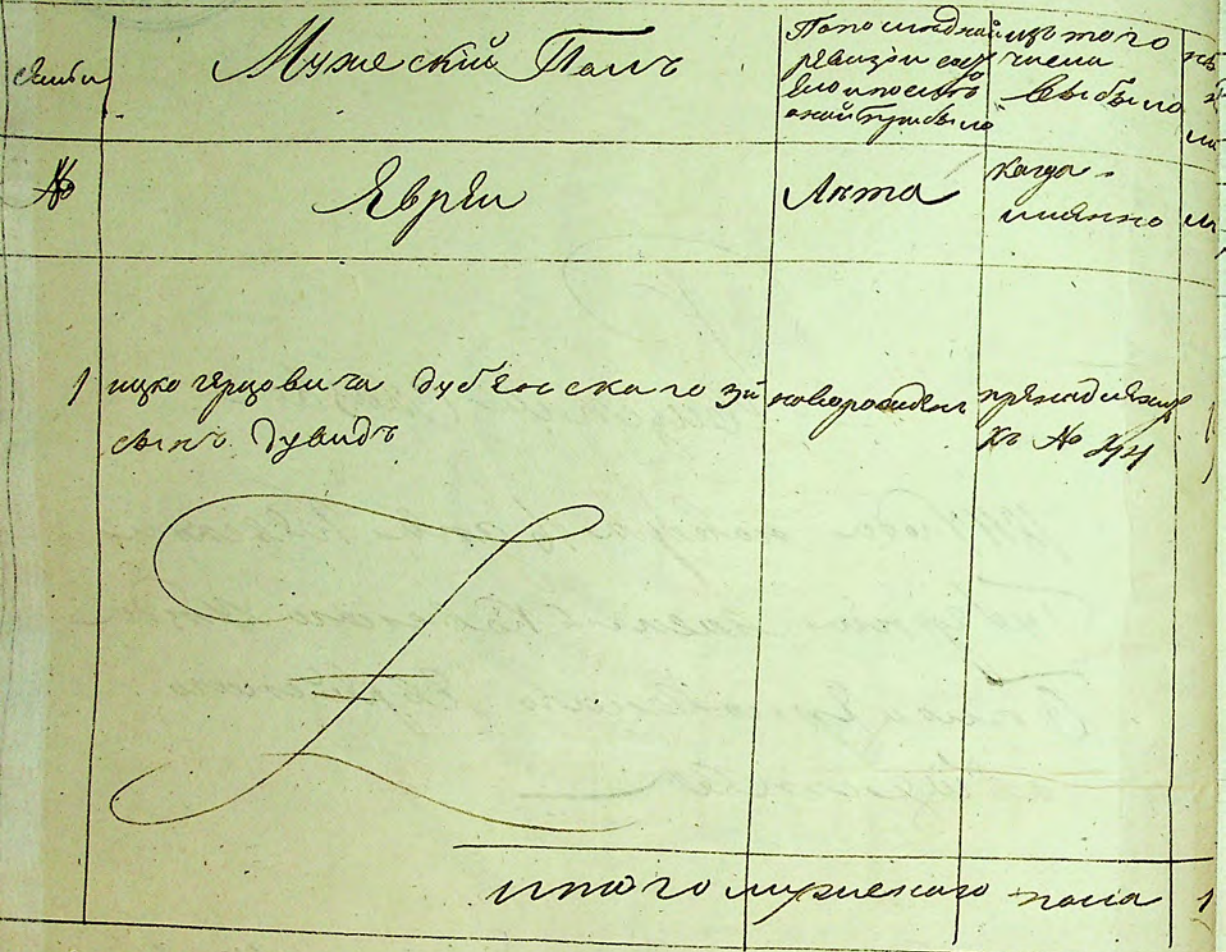 Мужеский Полъ
По последней
ревизіи сос
ояло и после
оной прибыло
изъ того
числа
выбыло
№
Евреи
Лета
когда
именно
1
ицко герцовича дубенскаго 3й
сынъ дувидъ
новорожденъ
принадлежит
къ №
1
итого мужескаго пола 1